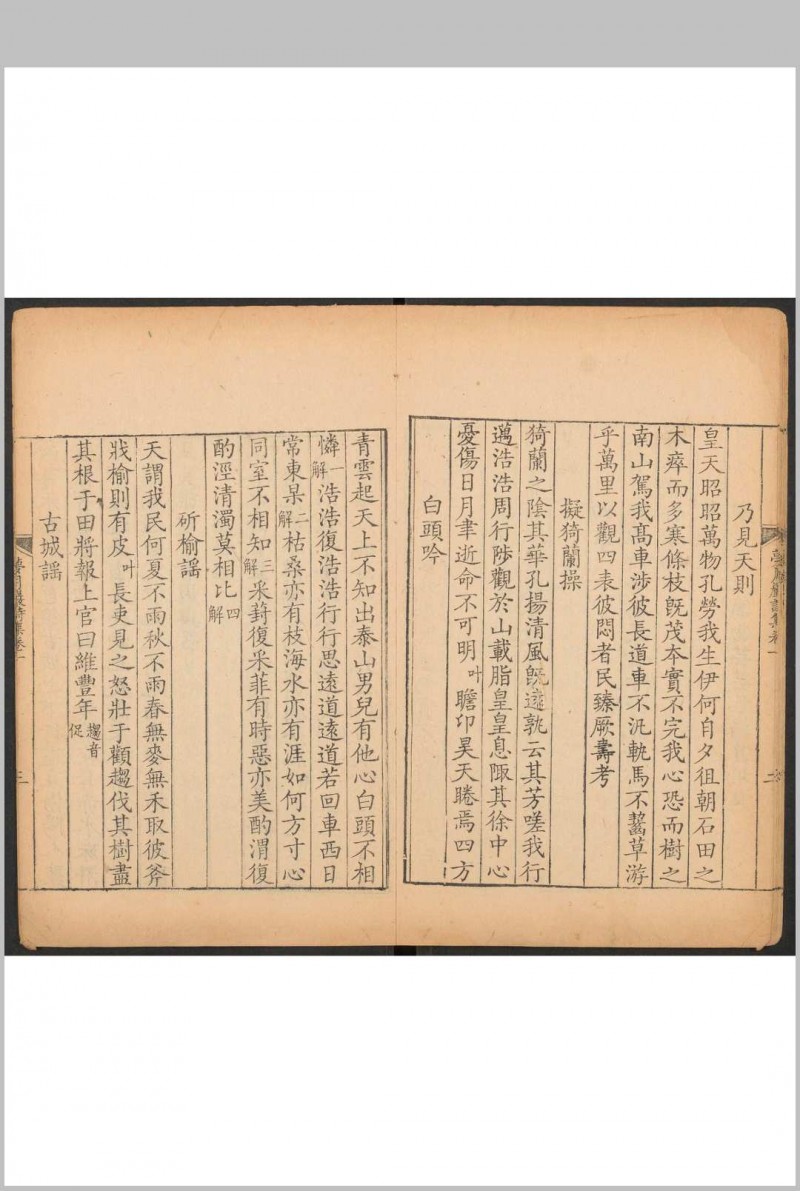 乃見天則
皇天昭昭萬物孔勞我生伊何自夕徂朝石田之
木瘁而多寒條枝旣茂本實不完我心恐而樹之
南山駕我髙車涉彼長道車不汎軌馬不齧草游
乎萬里以觀四表彼悶者民臻厥壽考
擬猗蘭操
猗蘭之陰其華孔揚清風旣遠孰云其芳嗟我行
邁浩浩周行陟觀於山載脂皇皇息陬其徐中心
憂傷日月聿逝命不可明叶瞻卬昊天睠焉四方
白頭吟
青雲起天上不知出泰山男兒有他心白頭不相
憐一解浩浩復浩浩行行思遠道遠道若回車西日
常東杲二解枯桑亦有枝海水亦有涯如何方寸心
同室不相知三解采葑復采菲有時惡亦美酌渭復
酌涇清濁莫相比四解
斫榆謠
天謂我民何夏不雨秋不雨春無麥無禾取彼斧
戕榆則有皮叶長吏見之怒壯于顴趨伐其樹盡
其根于田將報上官曰維豐年趨音促
古城謠
三